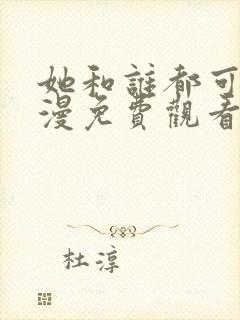 她和誰都可
漫免費觀看
杜淳